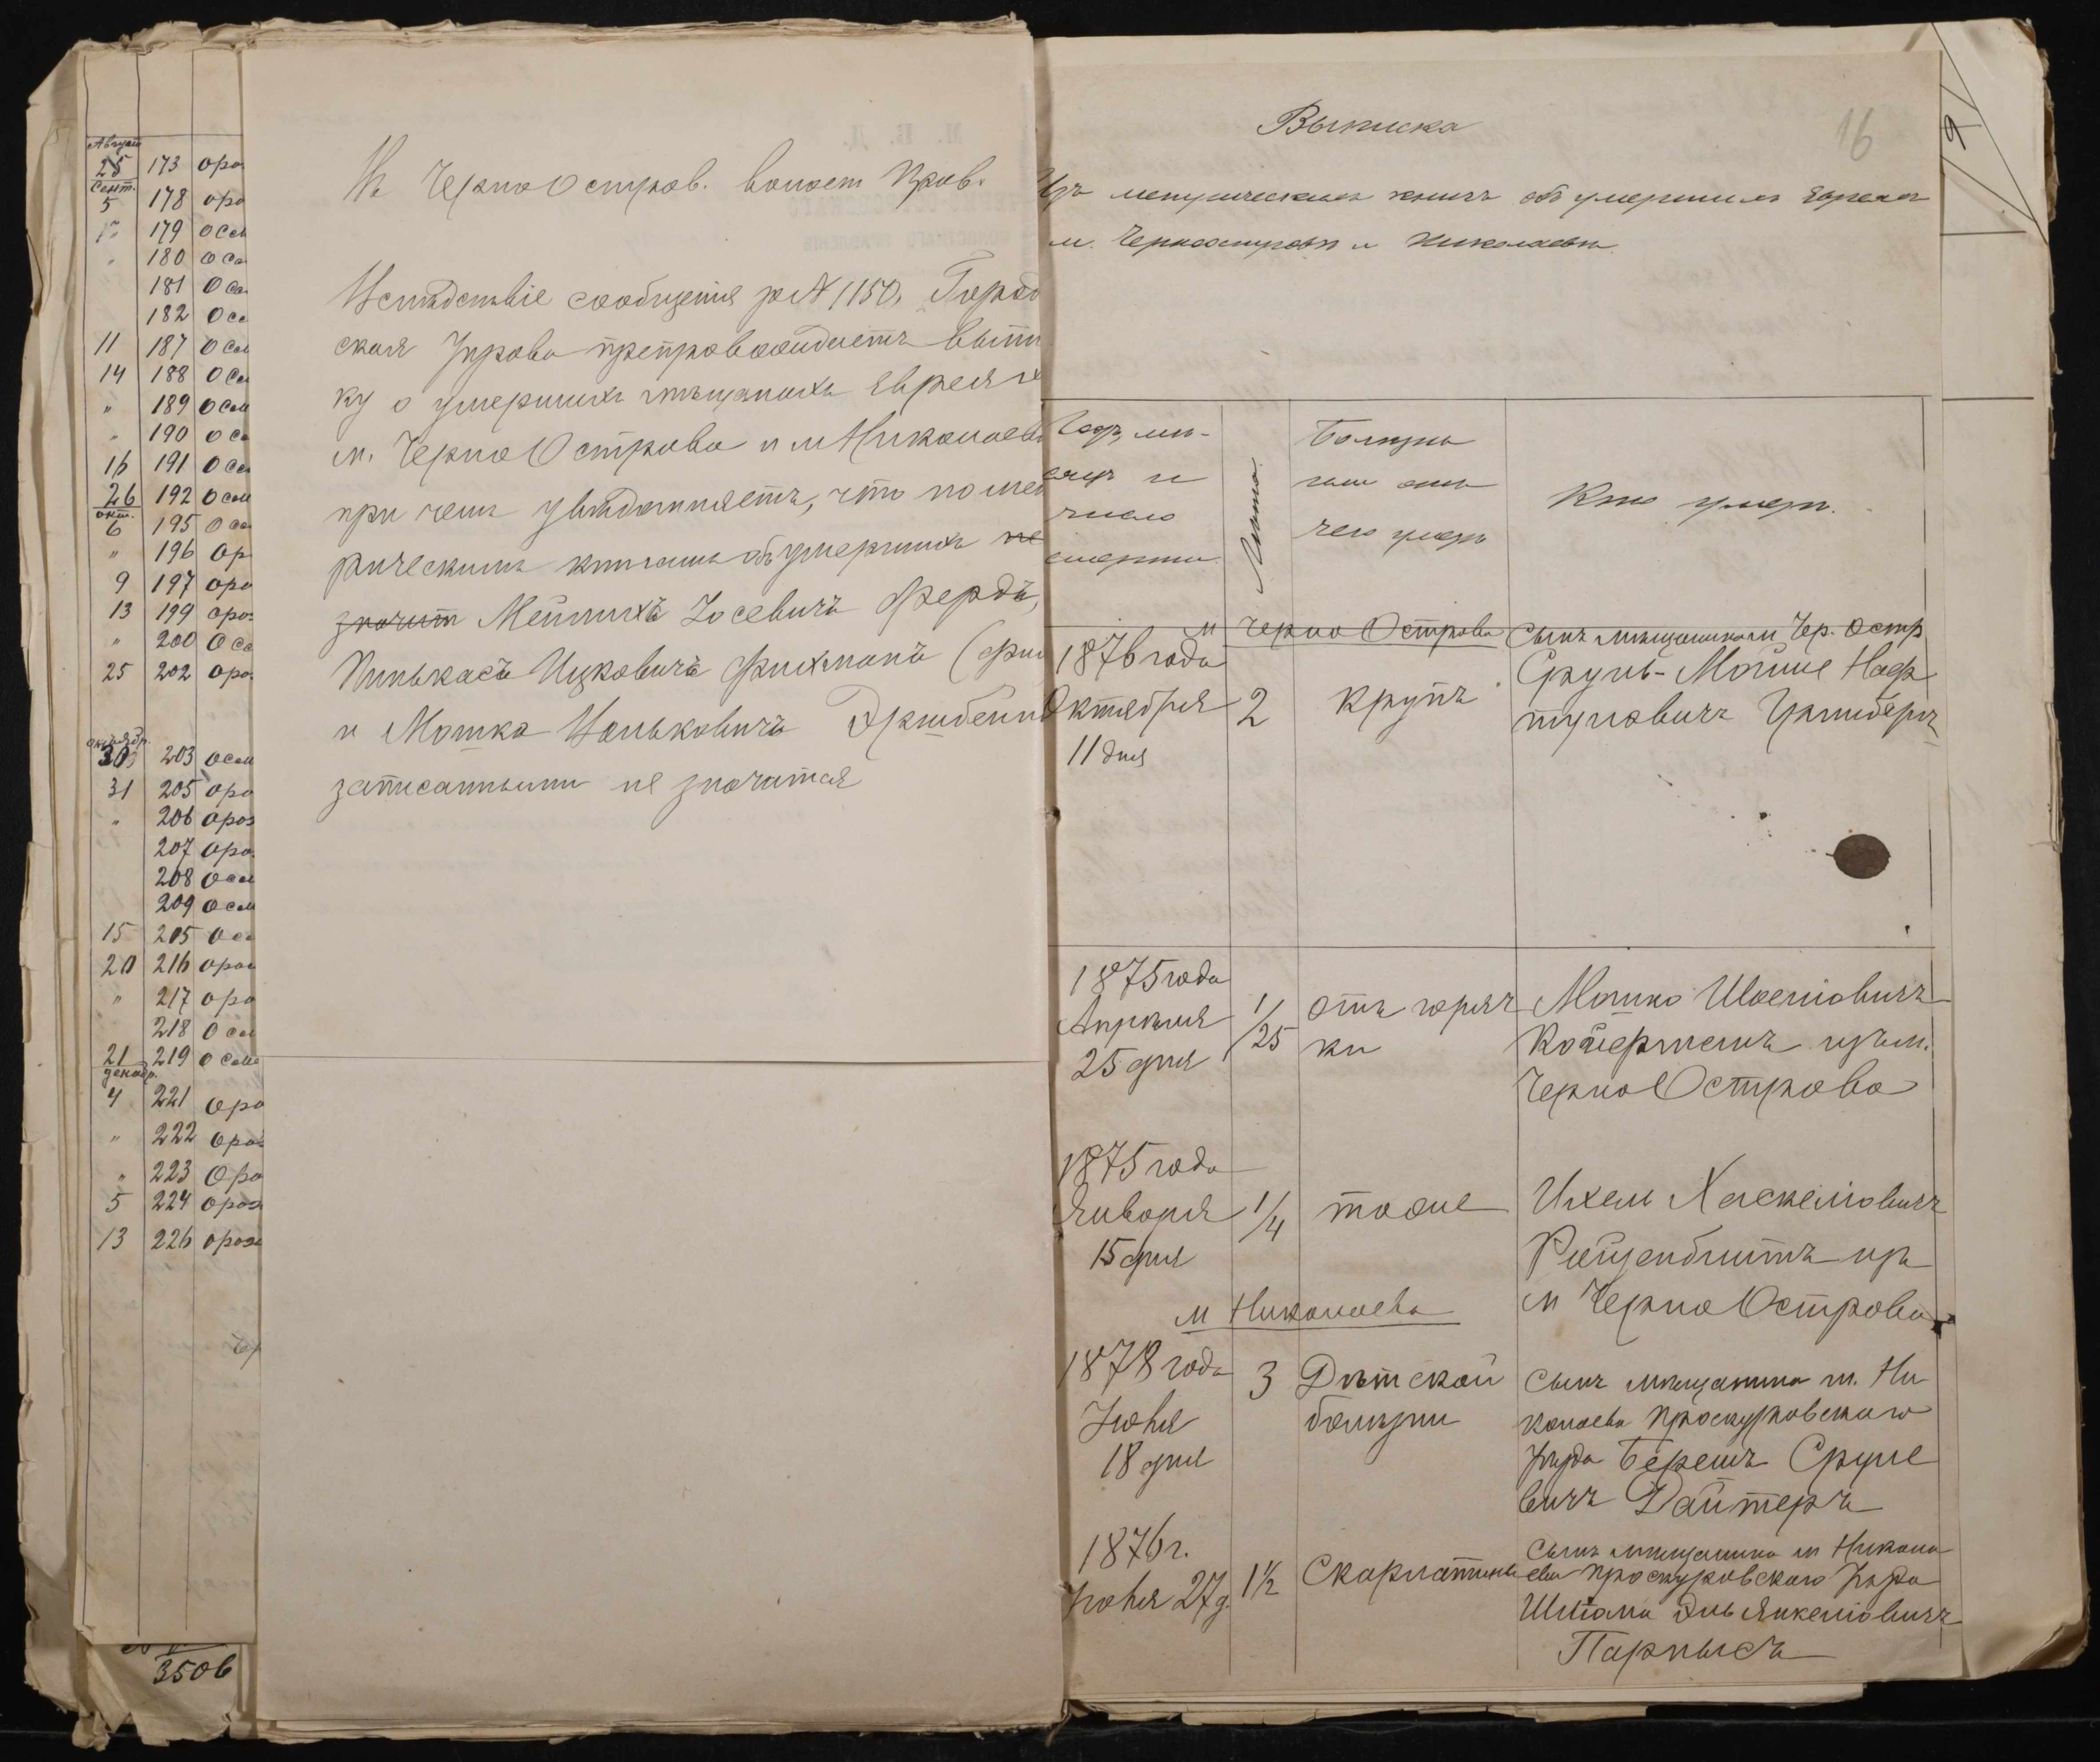 Август
25 173 оро
Сент.
5 178 оро
179 Осм
" 180 Осо
181 Осо
182 Осо
11 187 Осм
14 188 Осм
" 189 Осм
" 190 Осо
16 191 Осм
26 192 Осм
окт.
6 195 Осо
" 196 Ор
9 197 оро
13 199 ороз
" 200 Осо
25 202 оро
октябр
30 203 осм
31 205 оро
" 206 ороз
207 оро
208 Осм
209 Осм
15 205 Осо
20 216 ороз
" 217 оро
218 Осм
21 219 Осмо
декабр.
4 221 оро
" 222 ороз
" 223 Оро
5 224 ороз
13 226 ороз
3506
Въ ЧерноОстров. волост Прав.
Вслѣдствіе сообщенія за № 1150, Город
ская Управа препровождаетъ выпи
ку о умершихъ мѣщанахъ Евреяхъ
м. ЧерноОстрова и м Николаева
при чемъ увѣдомляетъ, что по мет
рическимъ книгамъ объ умершихъ не
значит Мейлихъ Іосевичъ Фердъ,
Пинькасъ Ицковичъ Фихманъ (фи
и Мошко Волькович
записанными не значатся
16
Выписка
Изъ метрическихъ книгъ объ умершихъ Евреяхъ
м. Черноострова и Николаева.
Годъ, мѣ-
сяцъ и
число
смерти.
Лѣта.
Болѣзнь
или отъ
чего умеръ
Кто умеръ.
м ЧерноОстрова
1876 года
Октября
11 дня
2
крупъ
Сынъ мѣщанина м Чер. Остр
Сруль-Мойше Наф
туловичъ Гринберг
1875 года
Апрѣля
25 дня
1/25
отъ горяч
ки
Мошко Шоелiовичъ
изъ м.
ЧерноОстрова
1875 года
Января
15 дня
1/4
тоже
Ихель Хаскелiовичъ
изъ
м ЧерноОстрова
м Николаева
1878 года
Іюня
18 дня
3
Дѣтской
болѣзни
Сынъ мѣщанина м. Ни
колаева Проскуровскаго
уѣзда Берешъ Сруле
вичъ Дайтеръ
1876 г.
Іюня 27 д.
1½
Скарлатины
Сынъ мѣщанина м Никола
ева Проскуровскаго уѣзда
Шліома Эль Янкелiовичъ
Парнысъ